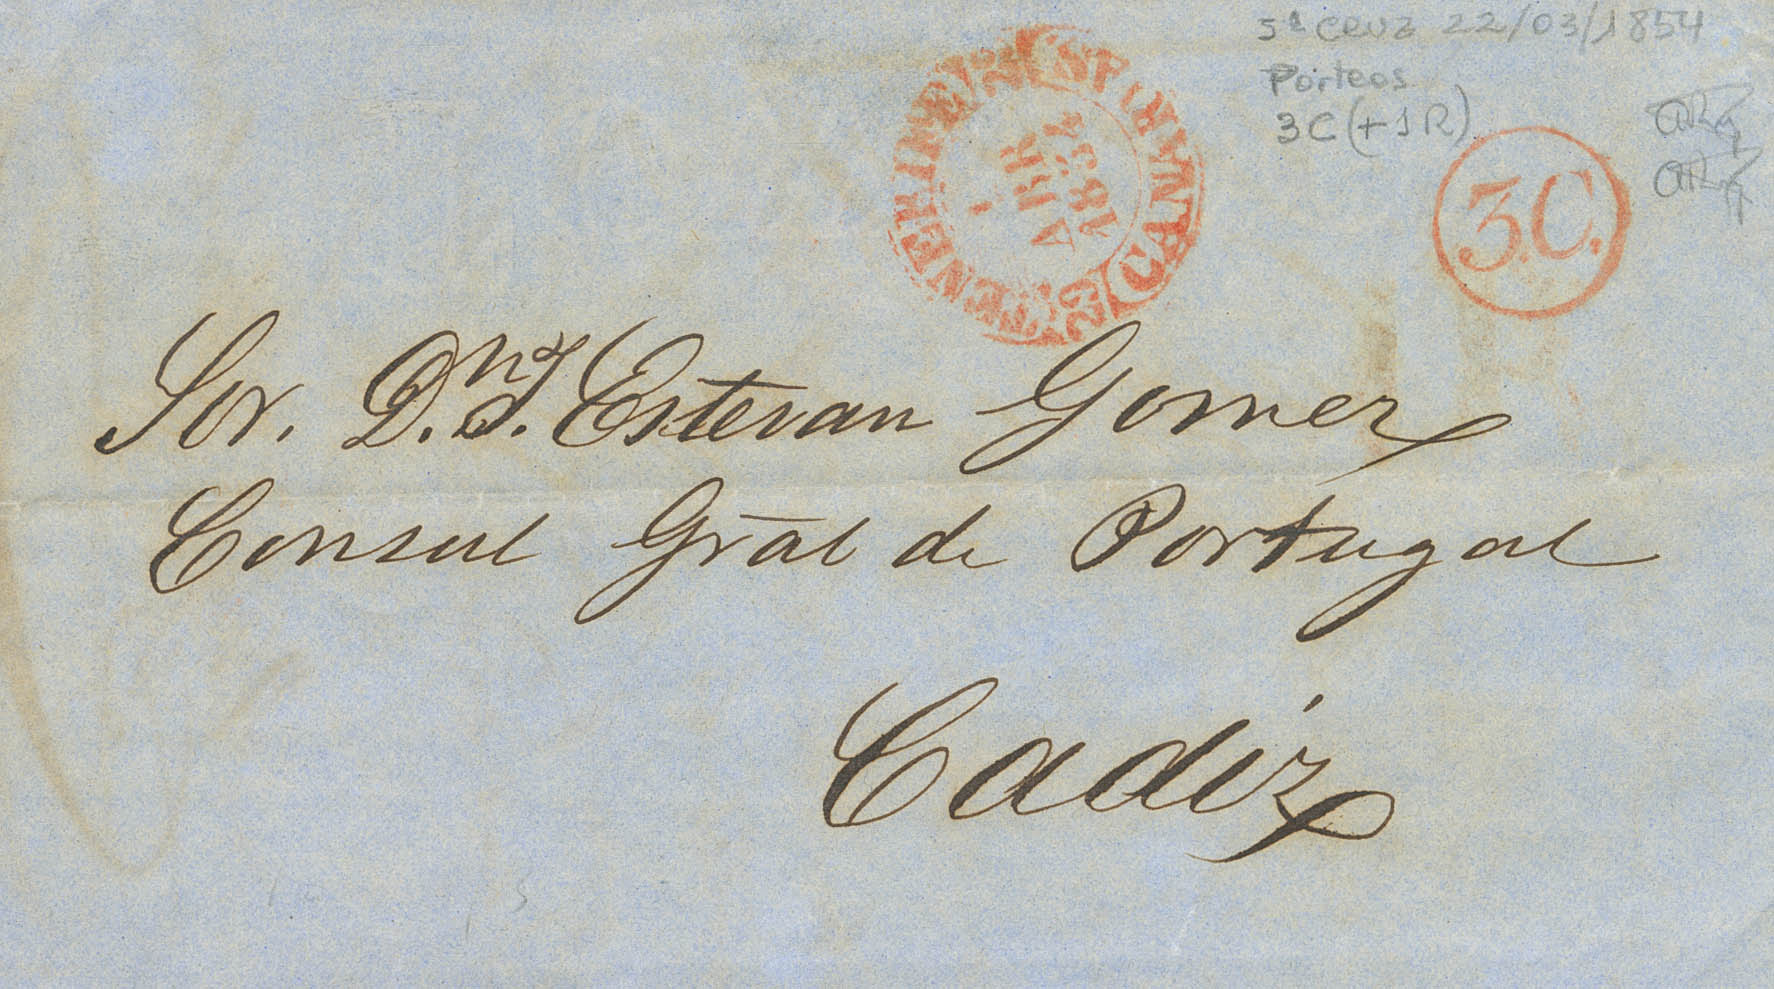 Sta Cruz 22/03/1854
Porteos
3C (+1R)
TENERIFE
1
ABR
1854
CANARIAS
3.C.
Sor. D.n J. Estevan Gomez
Consul Gral de Portugal
Cadiz